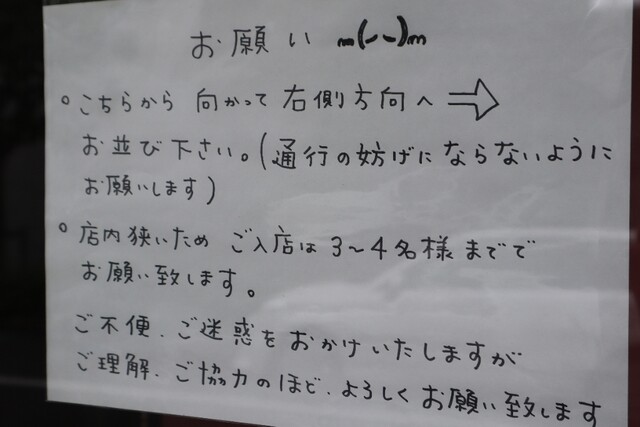 お願い m(--)m
。こちらから 向かって 右側方向へ ⇨
お並び下さい。(通行の妨げにならないように
お願いします)
。店内狭いため ご入店は 3~4名様までで
お願い致します。
ご不便、ご迷惑をおかけいたしますが
ご理解、ご協力のほど、よろしくお願い致します